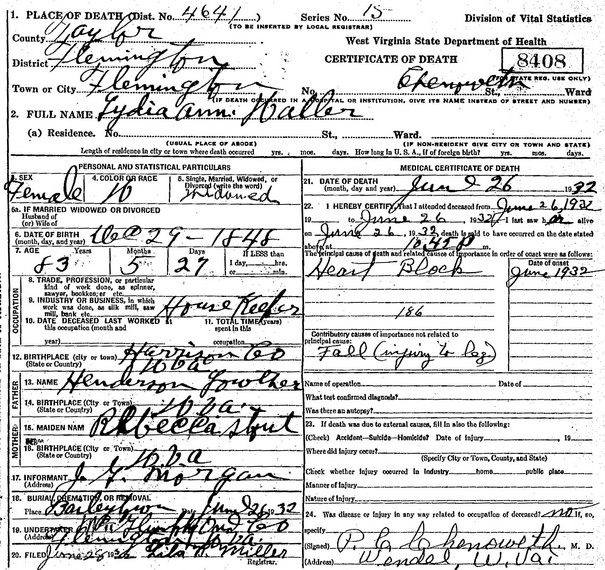 1. PLACE OF DEATH (Dist. No. 4641 Series No. 15 Division of Vital Statistics
(TO BE INSERTED BY LOCAL REGISTRAR)
County Taylor West Virginia State Department of Health
District Flemington CERTIFICATE OF DEATH 8408
(STATE REG. USE ONLY)
Town or City Flemington No. Chenoweth St., Ward
(IF DEATH OCCURRED IN A HOSPITAL OR INSTITUTION, GIVE ITS NAME INSTEAD OF STREET AND NUMBER)
2. FULL NAME Lydia Ann Waller
(a) Residence. No. St., Ward.
(USUAL PLACE OF ABODE) (IF NON-RESIDENT GIVE CITY OR TOWN AND STATE)
Length of residence in city or town where death occurred yrs. mos. ds. How long in U. S., if of foreign birth? yrs. mos. ds.
PERSONAL AND STATISTICAL PARTICULARS
3. SEX 4. COLOR OR RACE 5. Single, Married, Widowed, or Divorced (write the word)
Female W Widowed
5a. IF MARRIED WIDOWED OR DIVORCED
Husband of
(or) Wife of
6. DATE OF BIRTH (month, day, and year) Dec 29-1848
7. AGE Years Months Days If LESS than
1 day, hrs.
or min.
83 5 27
OCCUPATION
8. TRADE, PROFESSION, or particular kind of work done, as spinner, sawyer, bookkeeper etc.
9. INDUSTRY OR BUSINESS, in which work was done, as silk mill, saw mill, bank etc. House Keeper
10. DATE DECEASED LAST WORKED at this occupation (month and year)
11. TOTAL TIME (years) spent in this occupation
12. BIRTHPLACE (city or town) Harrison Co
(State or Country) W Va
FATHER
13. NAME Henderson Lowther
14. BIRTHPLACE (City or Town)
(State or Country) W Va
MOTHER
15. MAIDEN NAME Rebecca Stout
16. BIRTHPLACE (City or Town)
(State or Country) W Va
17. INFORMANT J. G. Morgan
(Address)
18. BURIAL, CREMATION, OR REMOVAL
Place Date June 26 1932
19. UNDERTAKER Co
(Address) Flemington W Va
20. FILED June 28 Miller
Registrar.
MEDICAL CERTIFICATE OF DEATH
21. DATE OF DEATH (month, day, and year) June 26 1932
22. I HEREBY CERTIFY, That I attended deceased from June 26, 1932
19 to June 26, 1932 I last saw her alive
on June 26, 1932 death is said to have occurred on the date stated
above, at 10:45 P m.
The principal cause of death and related causes of importance in order of onset were as follows:
Date of onset
Heart Block June 1932
186
Contributory causes of importance not related to principal cause:
Fall (injury to leg)
Name of operation Date of
What test confirmed diagnosis?
Was there an autopsy?
23. If death was due to external causes, fill in also the following:
(Check) Accident—Suicide—Homicide? Date of injury 19
Where did injury occur?
(Specify City or Town, County, and State)
Check whether injury occurred in industry home public place
Manner of Injury
Nature of Injury
24. Was disease or injury in any way related to occupation of deceased? no If so,
specify
(Signed) P. C. Chenoweth M. D.
(Address) Wendel, W. Va.